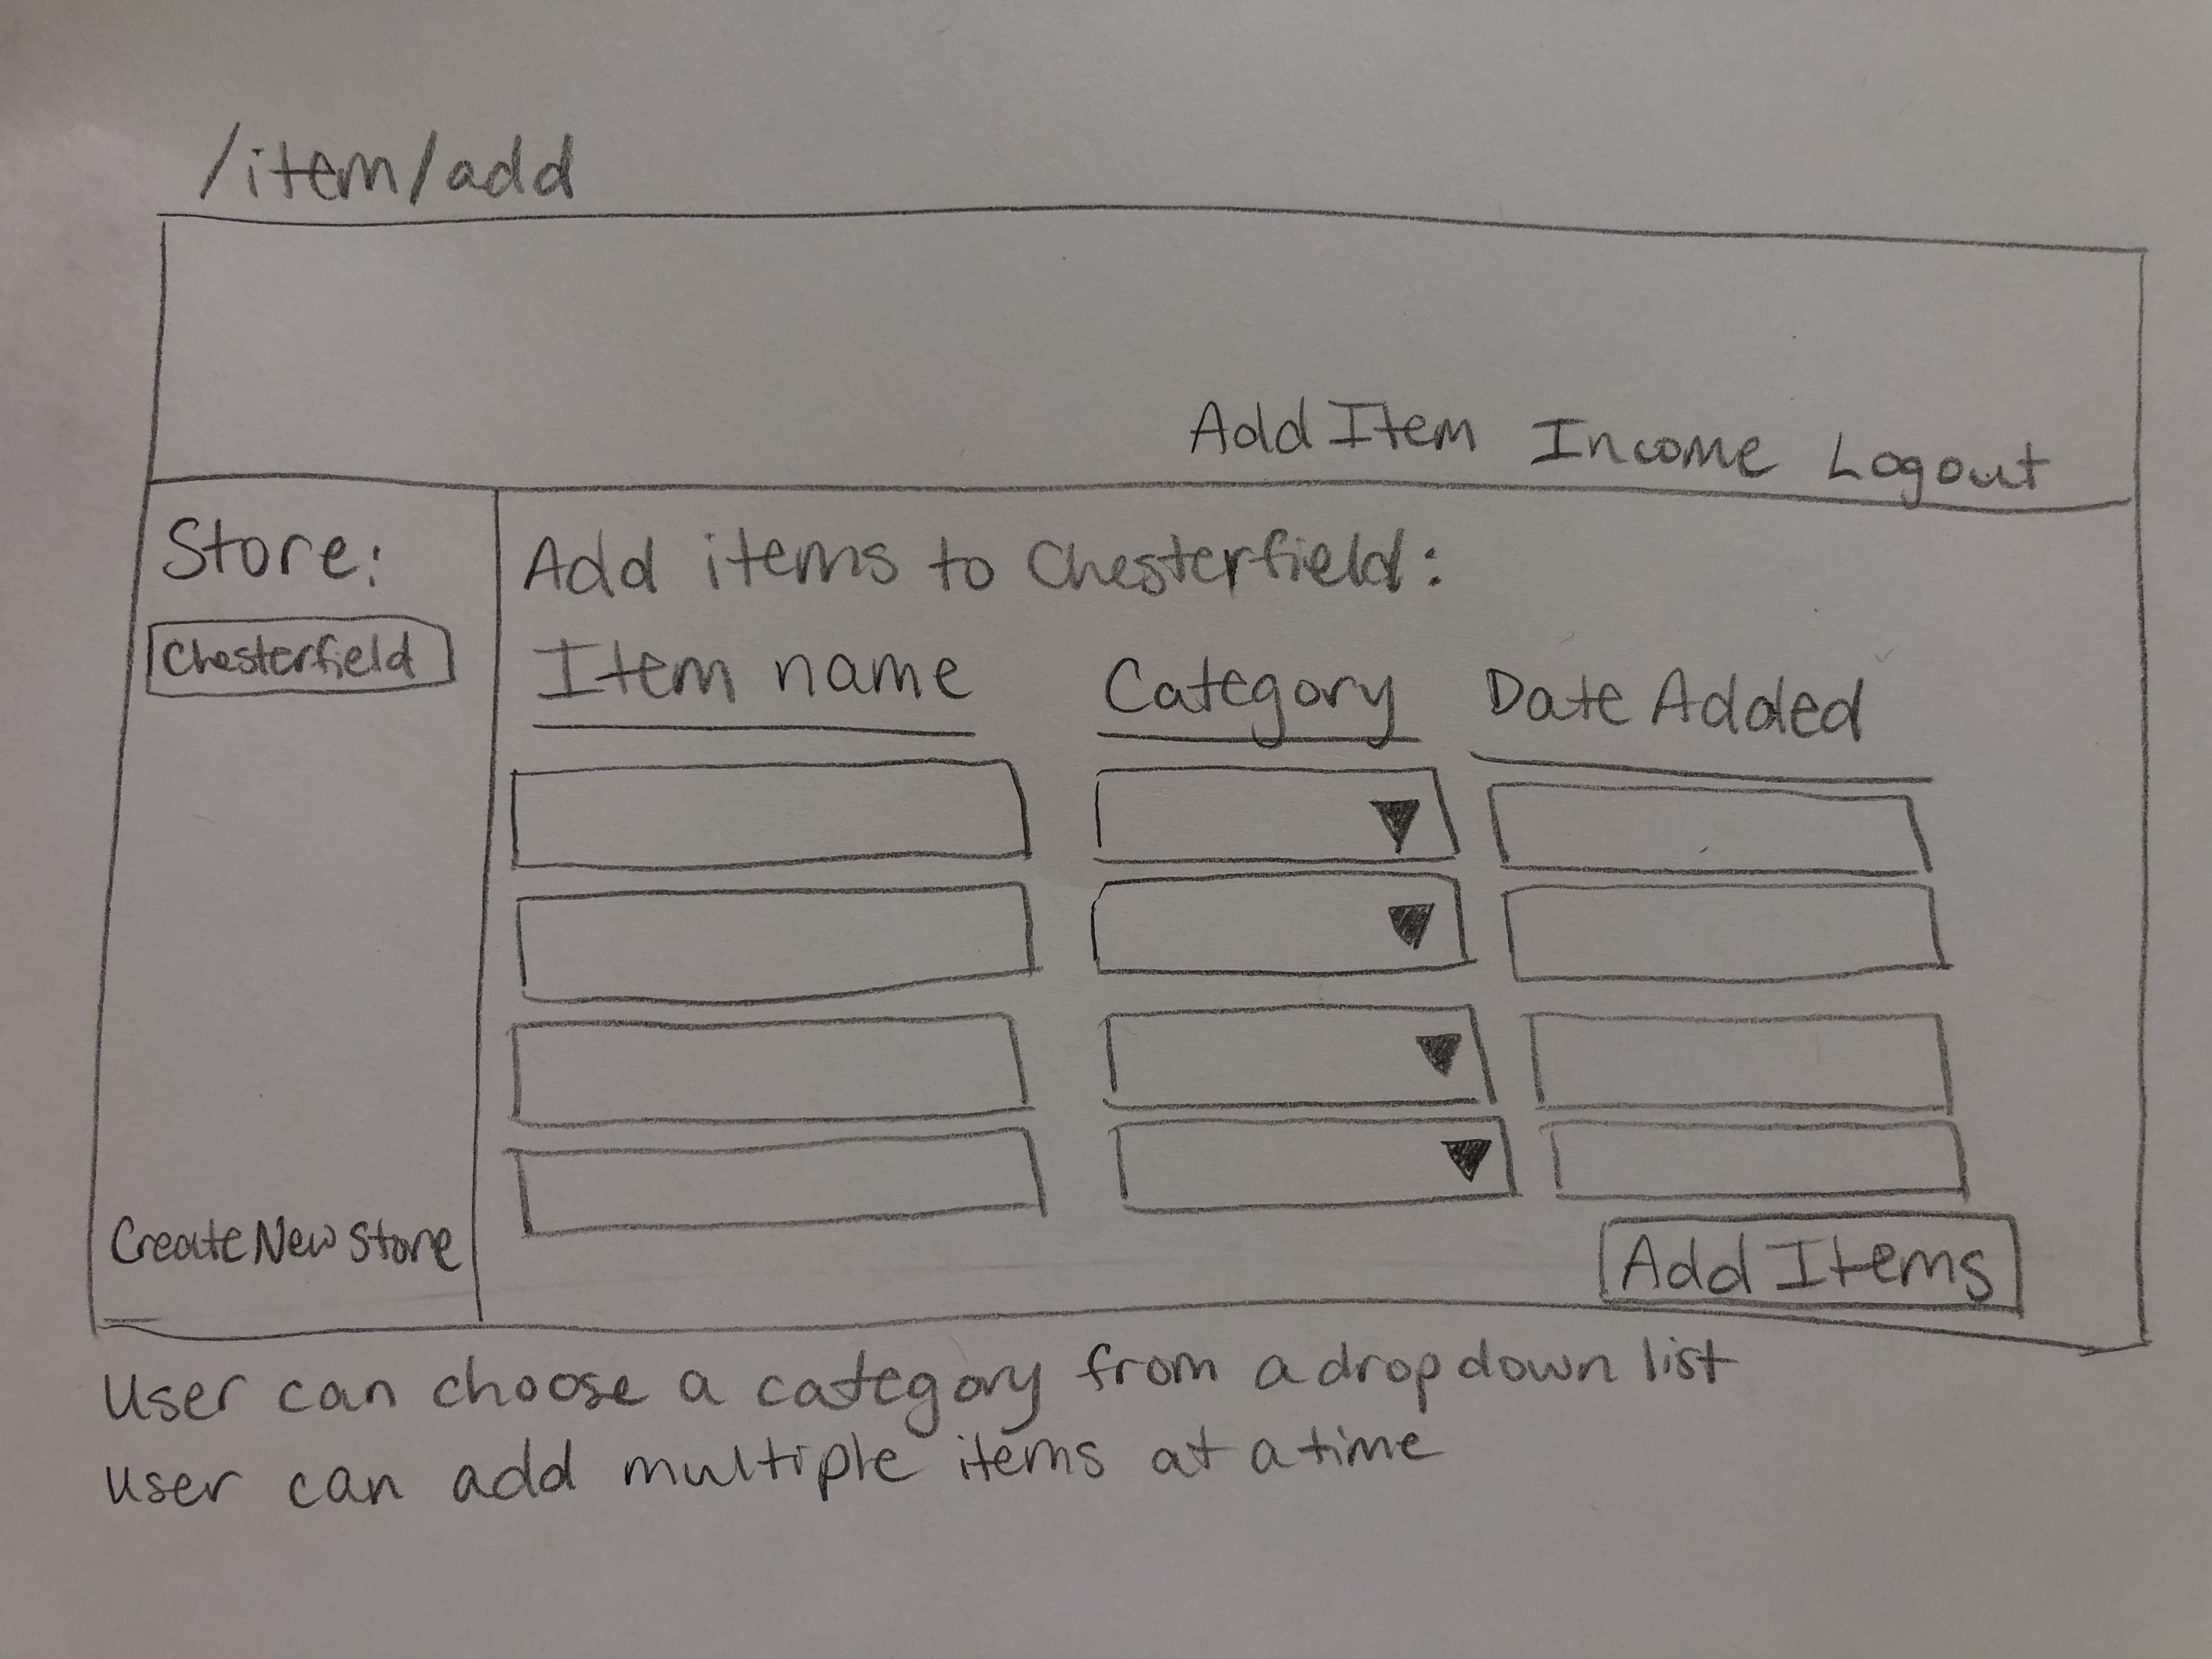 /item/add
Add Item Income Logout
Store:
Chesterfield
Create New Store
Add items to Chesterfield:
Item name Category Date Added
Add Items
User can choose a category from a dropdown list
user can add multiple items at a time